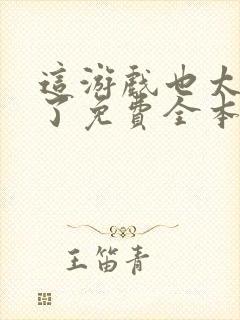 這游戲也太
了免費全本
王笛青